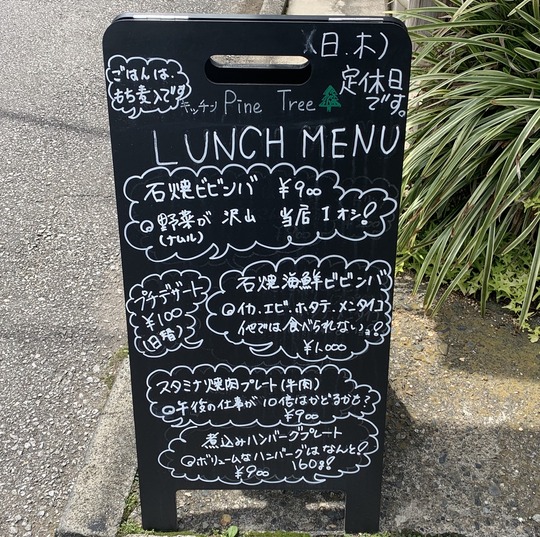 (日.木)
定休日
です。
ごはんは、
もち麦入です
キッチン Pine Tree
LUNCH MENU
石焼ビビンバ ¥900
野菜が 沢山 当店1オシ!
(ナムル)
プチデザート
¥100
(日替)
石焼海鮮ビビンバ
イカ.エビ.ホタテ.メンタイコ
他では食べられない。!
¥1,000
スタミナ焼肉プレート(牛肉)
午後の仕事が10倍はかどるかも?
¥900
煮込みハンバーグプレート
ボリュームなハンバーグはなんと!
¥900 160g!